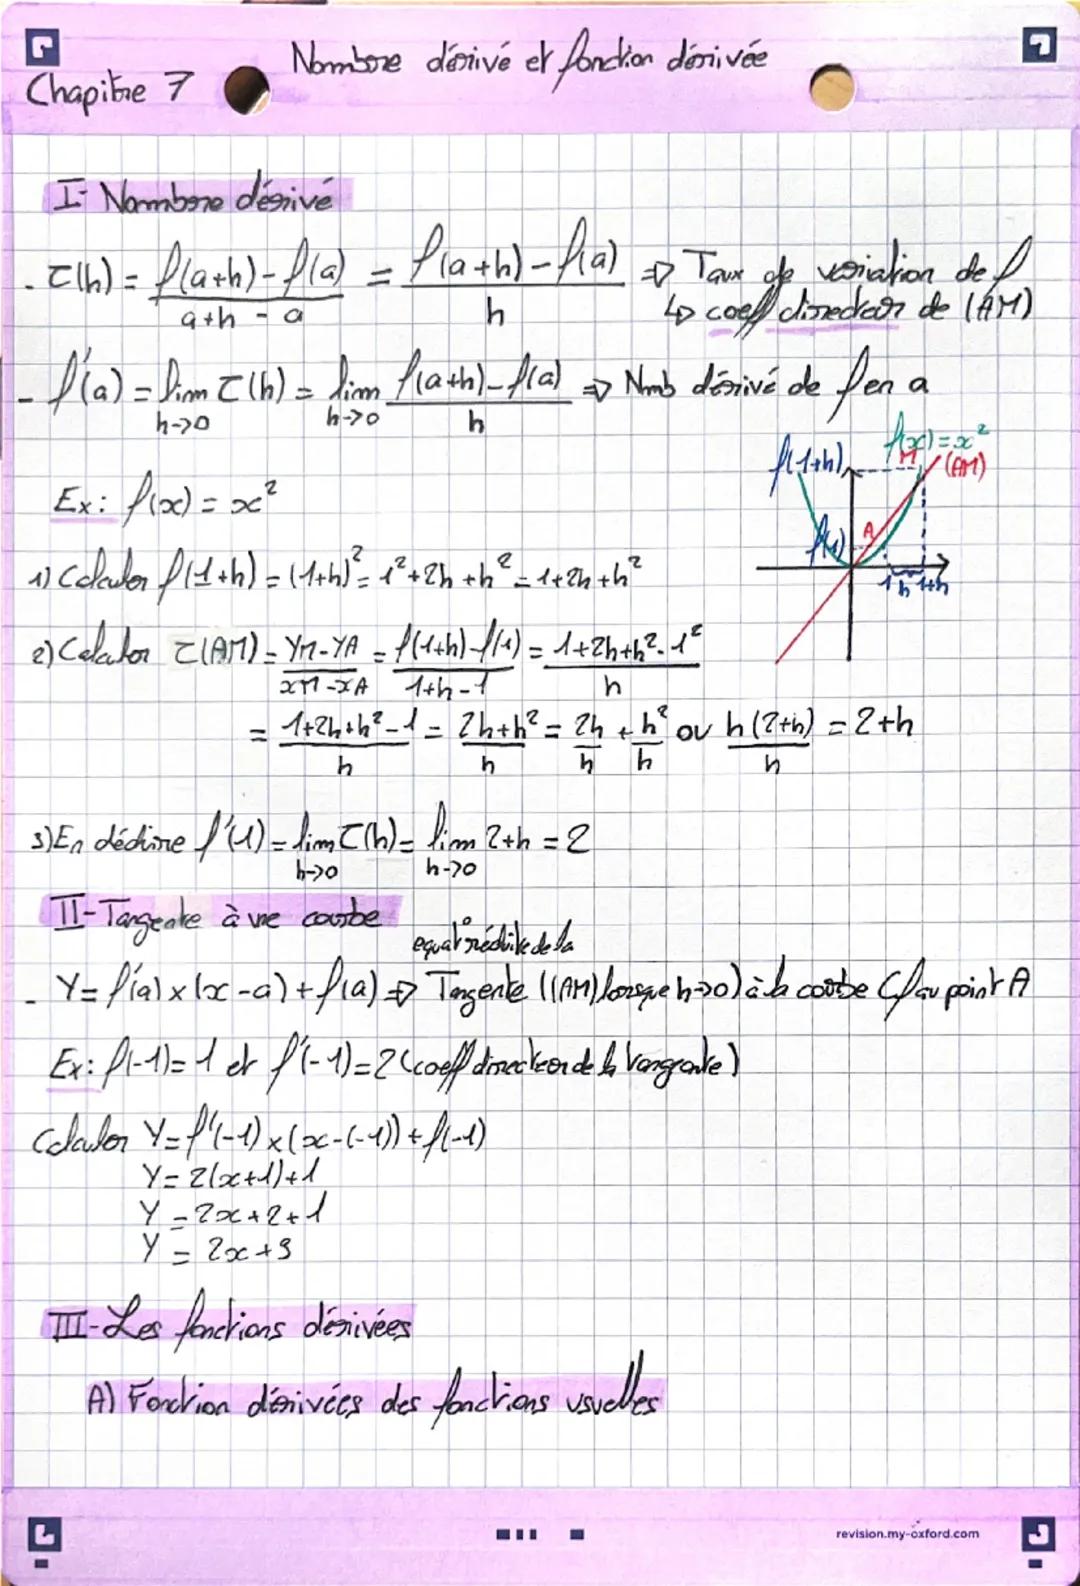 Nombre dérivé et fonction dérivée
Chapitre 7
I- Nombre dérivé
- τ(h) = f(a+h) - f(a) / a+h - a = f(a+h) - f(a) / h ⇒ Taux de variation de f
↳ coeff directeur de (AM)
- f'(a) = lim h->0 τ(h) = lim h->0 f(a+h) - f(a) / h ⇒ Nmb dérivé de f en a
f(1+h) f(x) = x²
M (AM)
f(1) A
1 h 1+h
Ex: f(x) = x²
1) Calculer f(1+h) = (1+h)² = 1² + 2h + h² = 1+2h+h²
2) Calculer τ(AM) = YM-YA / xM-xA = f(1+h)-f(1) / 1+h-1 = 1+2h+h²-1² / h
= 1+2h+h²-1 / h = 2h+h² / h = 2h / h + h² / h ou h(2+h) / h = 2+h
3) En déduire f'(1) = lim h->0 τ(h) = lim h->0 2+h = 2
II- Tangente à une courbe
equat° réduite de la
- Y = f'(a) x (x-a) + f(a) ⇒ Tangente ((AM) lorsque h->0) à la courbe Cf au point A
Ex: f(-1) = 1 et f'(-1) = 2 (coeff directeur de la tangente)
Calculer Y = f'(-1) x (x-(-1)) + f(-1)
Y = 2(x+1)+1
Y = 2x+2+1
Y = 2x+3
III- Les fonctions dérivées
A) Fonction dérivées des fonctions usuelles
revision.my-oxford.com